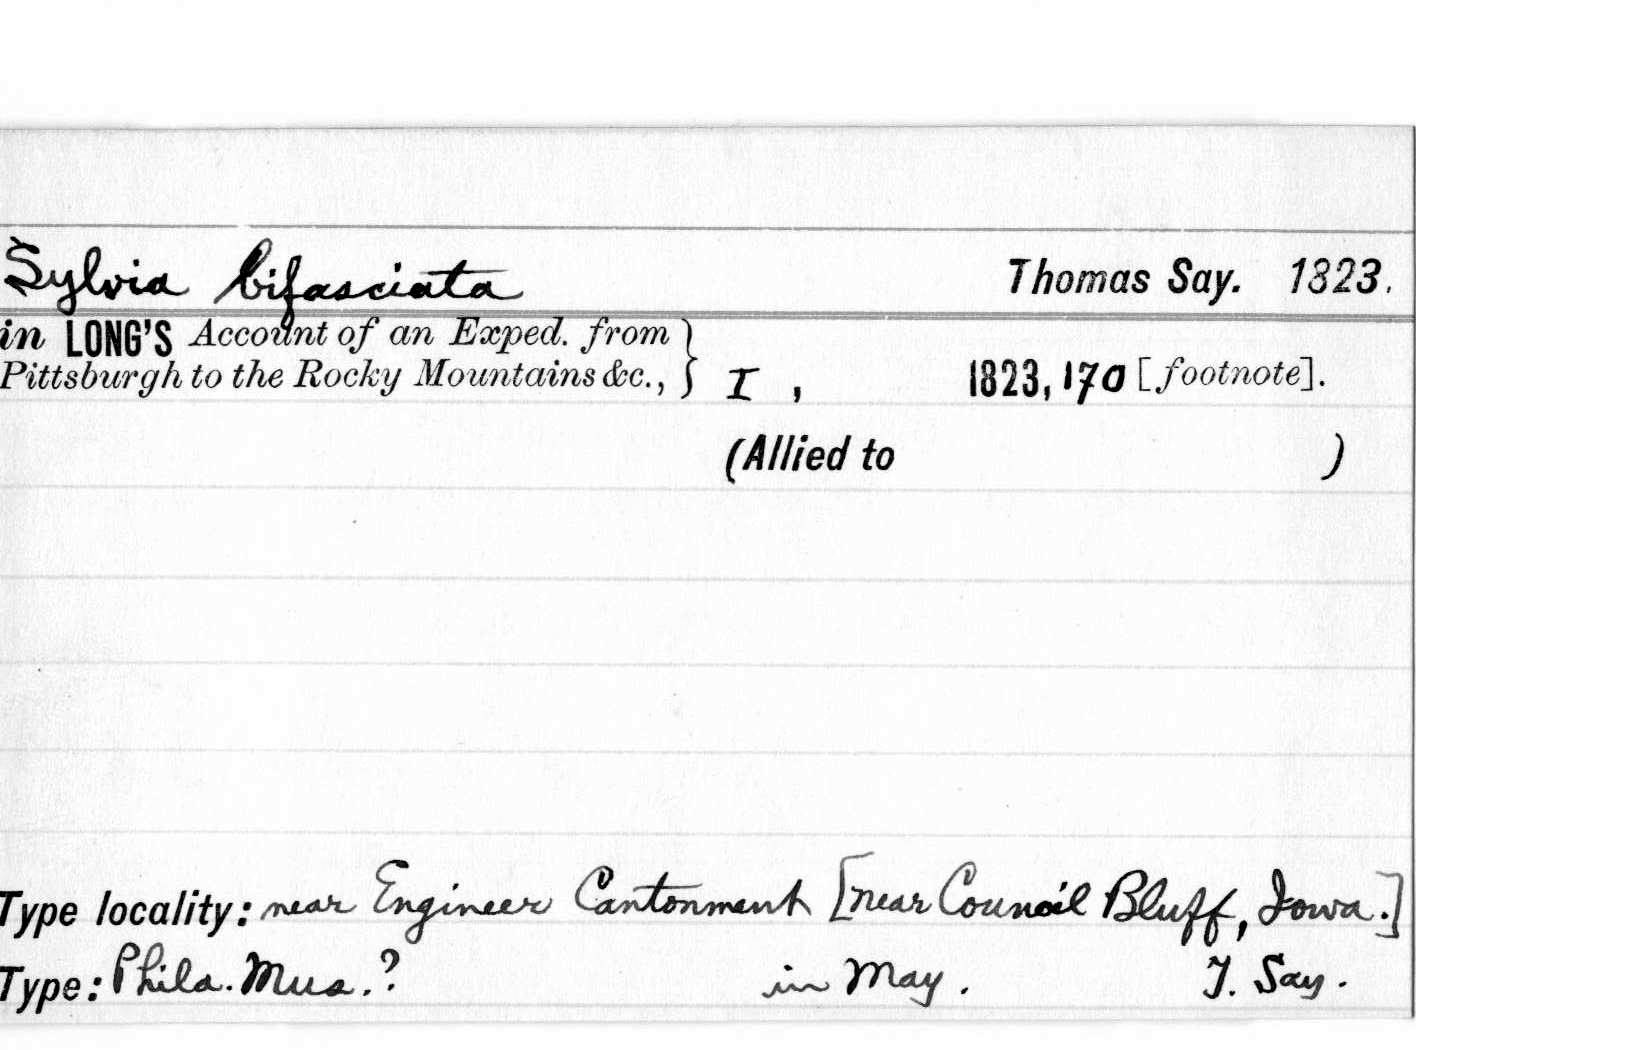 Sylvia bifasciata Thomas Say. 1823.
in LONG'S Account of an Exped. from
Pittsburgh to the Rocky Mountains &c., } I , 1823, 170 [footnote].
(Allied to )
Type locality: near Engineer Cantonment [near Council Bluff, Iowa.]
Type: Phila. Mus.? in May. T. Say.